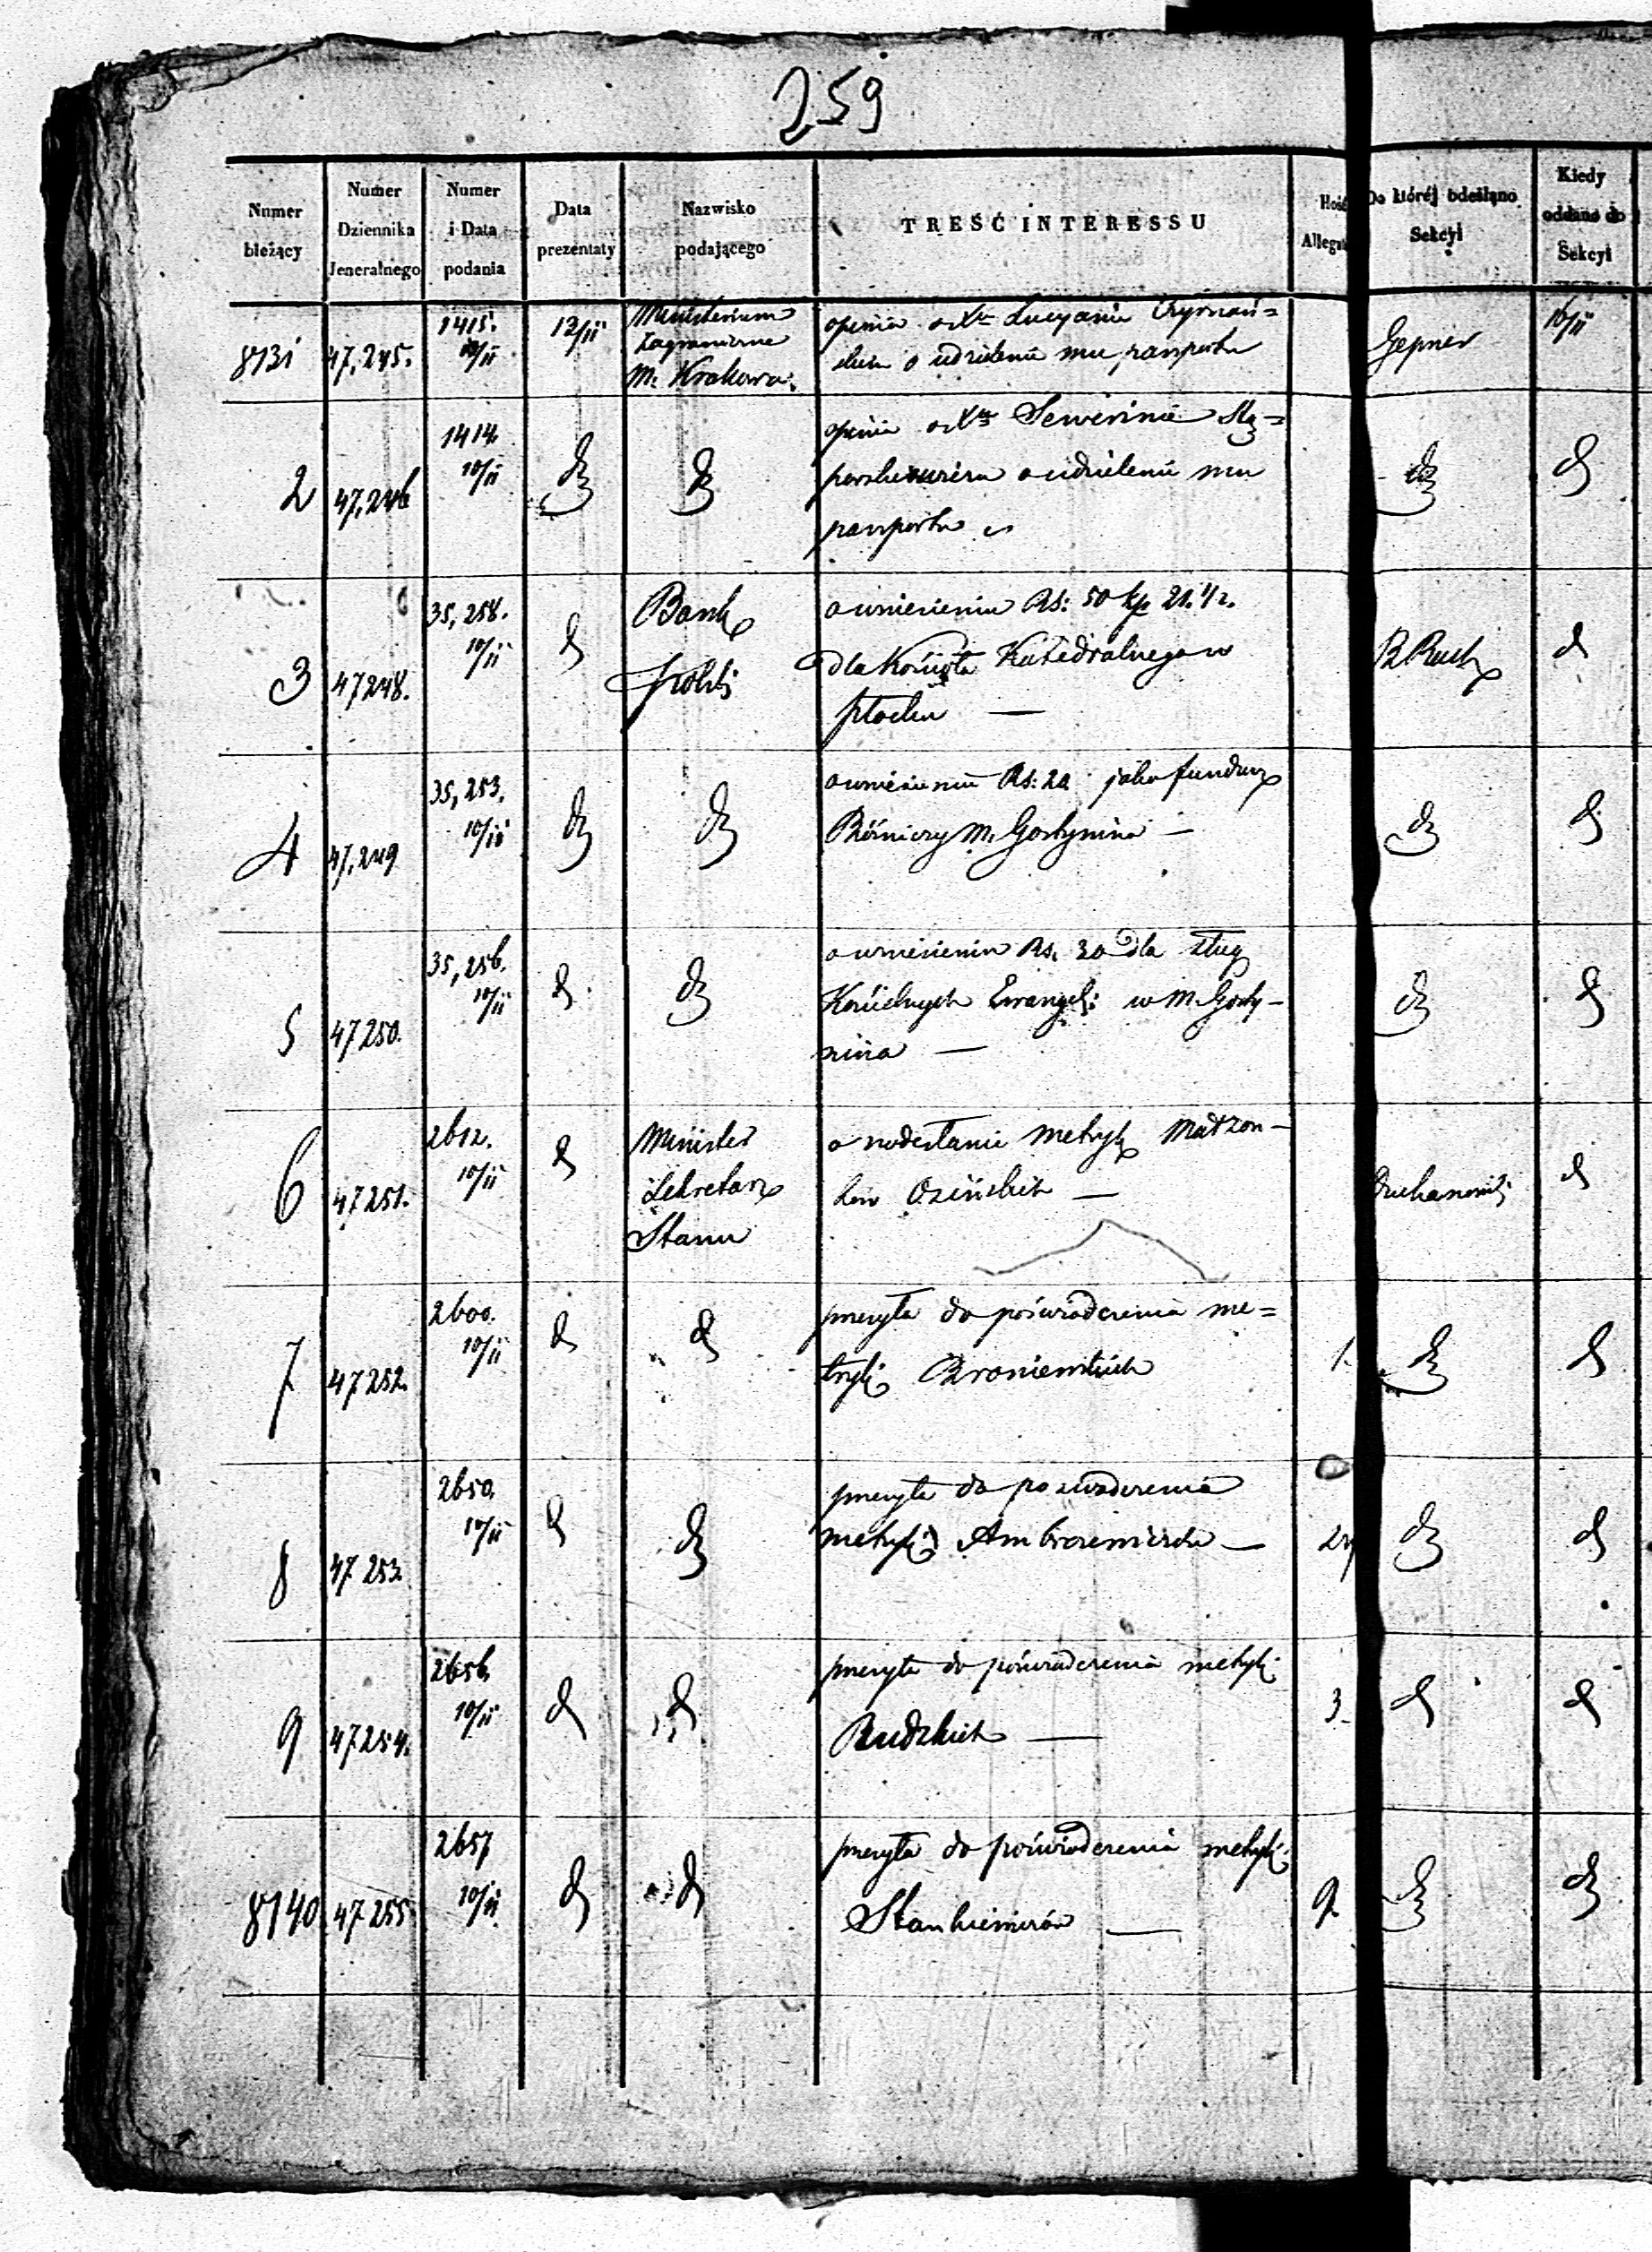 259
Numer bieżący
Numer Dziennika Jeneralnego
Numer i Data podania
Data prezentaty
Nazwisko podającego
TREŚĆ INTERESSU
Ilość
Do któréj odesłano Sekcyi
Kiedy oddano do Sekcyi
8131 47,245. 1415. 10/11 12/11 Ministerium Zagraniczne M. Krakowa
opinia o Xu Lucyanie
o udzieleniu mu paszportu
Gepner 16/11
2 47,246 1414. 10/11 dto dto
opinia o Xu Sewerinie
o udzieleniu mu
paszportu
dto d
3 47248. 35,258. 10/11 d Bank Polski
o wniesieniu Rs: 50 kp 21. 1/2.
dla Kościoła Katedralnego w
Płocku —
d
4 47,249 35,253. 10/11 dto dto
o wniesieniu Rs: 20 jako fundusz
Bóźniczy M. Gostynina —
dto d
5 47250. 35,256. 10/11 d dto
o wniesieniu Rs. 30 dla sług
Kościelnych Ewangeli: w M. Gosty-
nina —
dto d
6 47251. 2612. 10/11 d Minister Sekretarz Stanu
o nadesłanie metryk Małżon-
ków Osińskich —
d
7 47252. 2600. 10/11 d d
przesyła do poświadczenia me=
tryki Broniewskich
1. dto d
8 47253. 2650. 10/11 d dto
przesyła do poświadczenia
metryki Ambrożewicza —
dto d
9 47254. 2656. 10/11 d d
przesyła do poświadczenia metryki
Rudzkich —
3. d d
8140 47255 2657 10/11 d d
przesyła do poświadczenia metryki
Stankiewiczów —
9. dto d